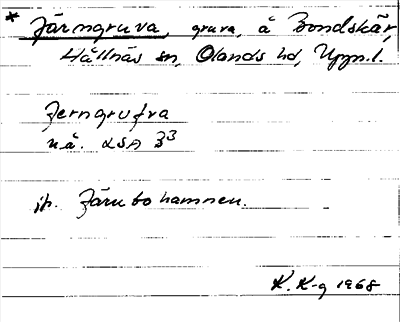 * Järngruva, gruva, å Bondskär,
Hållnäs sn, Olands hd, Uppl.
Jerngrufva
u.å. LSA B3
jfr. Järubohamnen.
K. K-g 1968